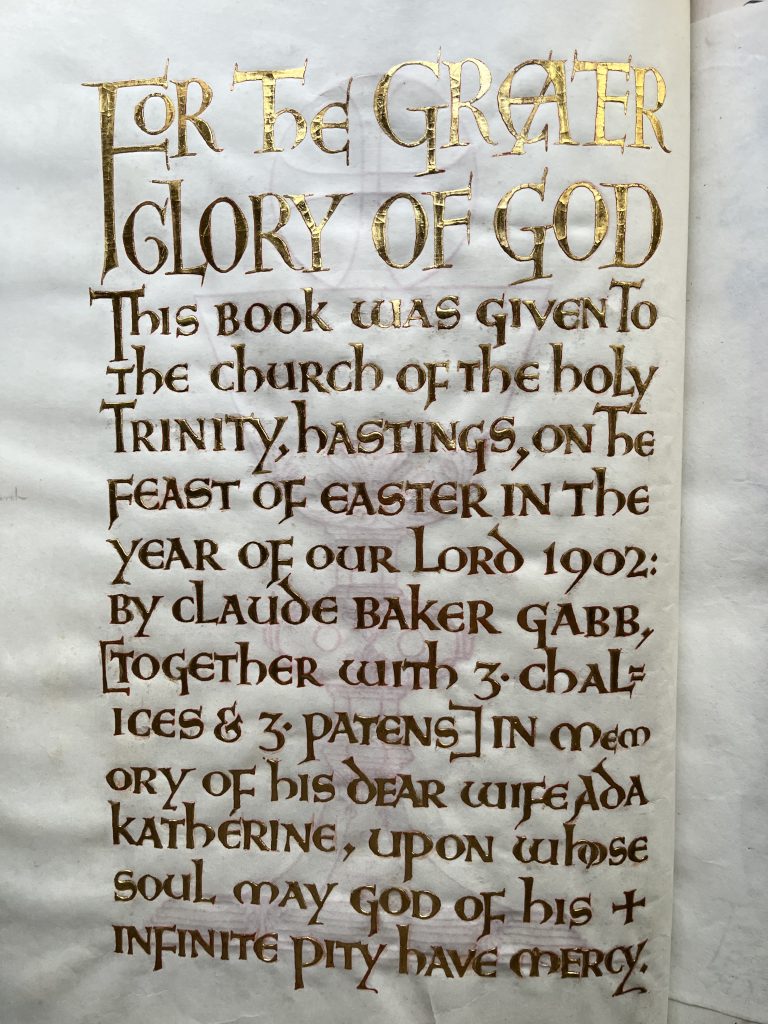 FOR THE GREATER
GLORY OF GOD
THIS BOOK WAS GIVEN TO
THE CHURCH OF THE HOLY
TRINITY, HASTINGS, ON THE
FEAST OF EASTER IN THE
YEAR OF OUR LORD 1902:
BY CLAUDE BAKER GABB,
[TOGETHER WITH 3· CHAL=
ICES & 3· PATENS] IN MEM
ORY OF HIS DEAR WIFE ADA
KATHERINE, UPON WHOSE
SOUL MAY GOD OF HIS +
INFINITE PITY HAVE MERCY.